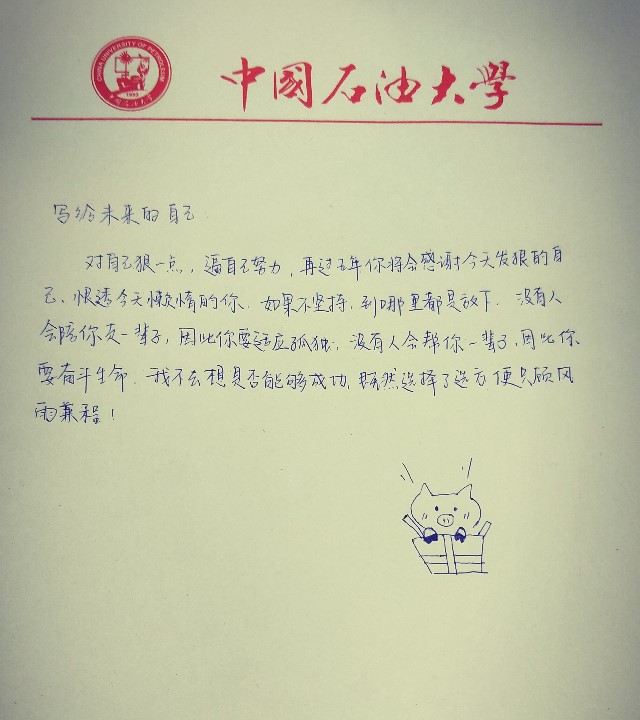 CHINA UNIVERSITY OF PETROLEUM
1953
中国石油大学
中國石油大學
写给未来的自己
对自己狠一点，逼自己努力，再过五年你将会感谢今天发狠的自
己、恨透今天懒惰的你。如果不坚持，到哪里都是放下。没有人
会陪你走一辈子，因此你要适应孤独，没有人会帮你一辈子，因此你
要奋斗生命。我不去想是否能够成功，既然选择了远方便只顾风
雨兼程！